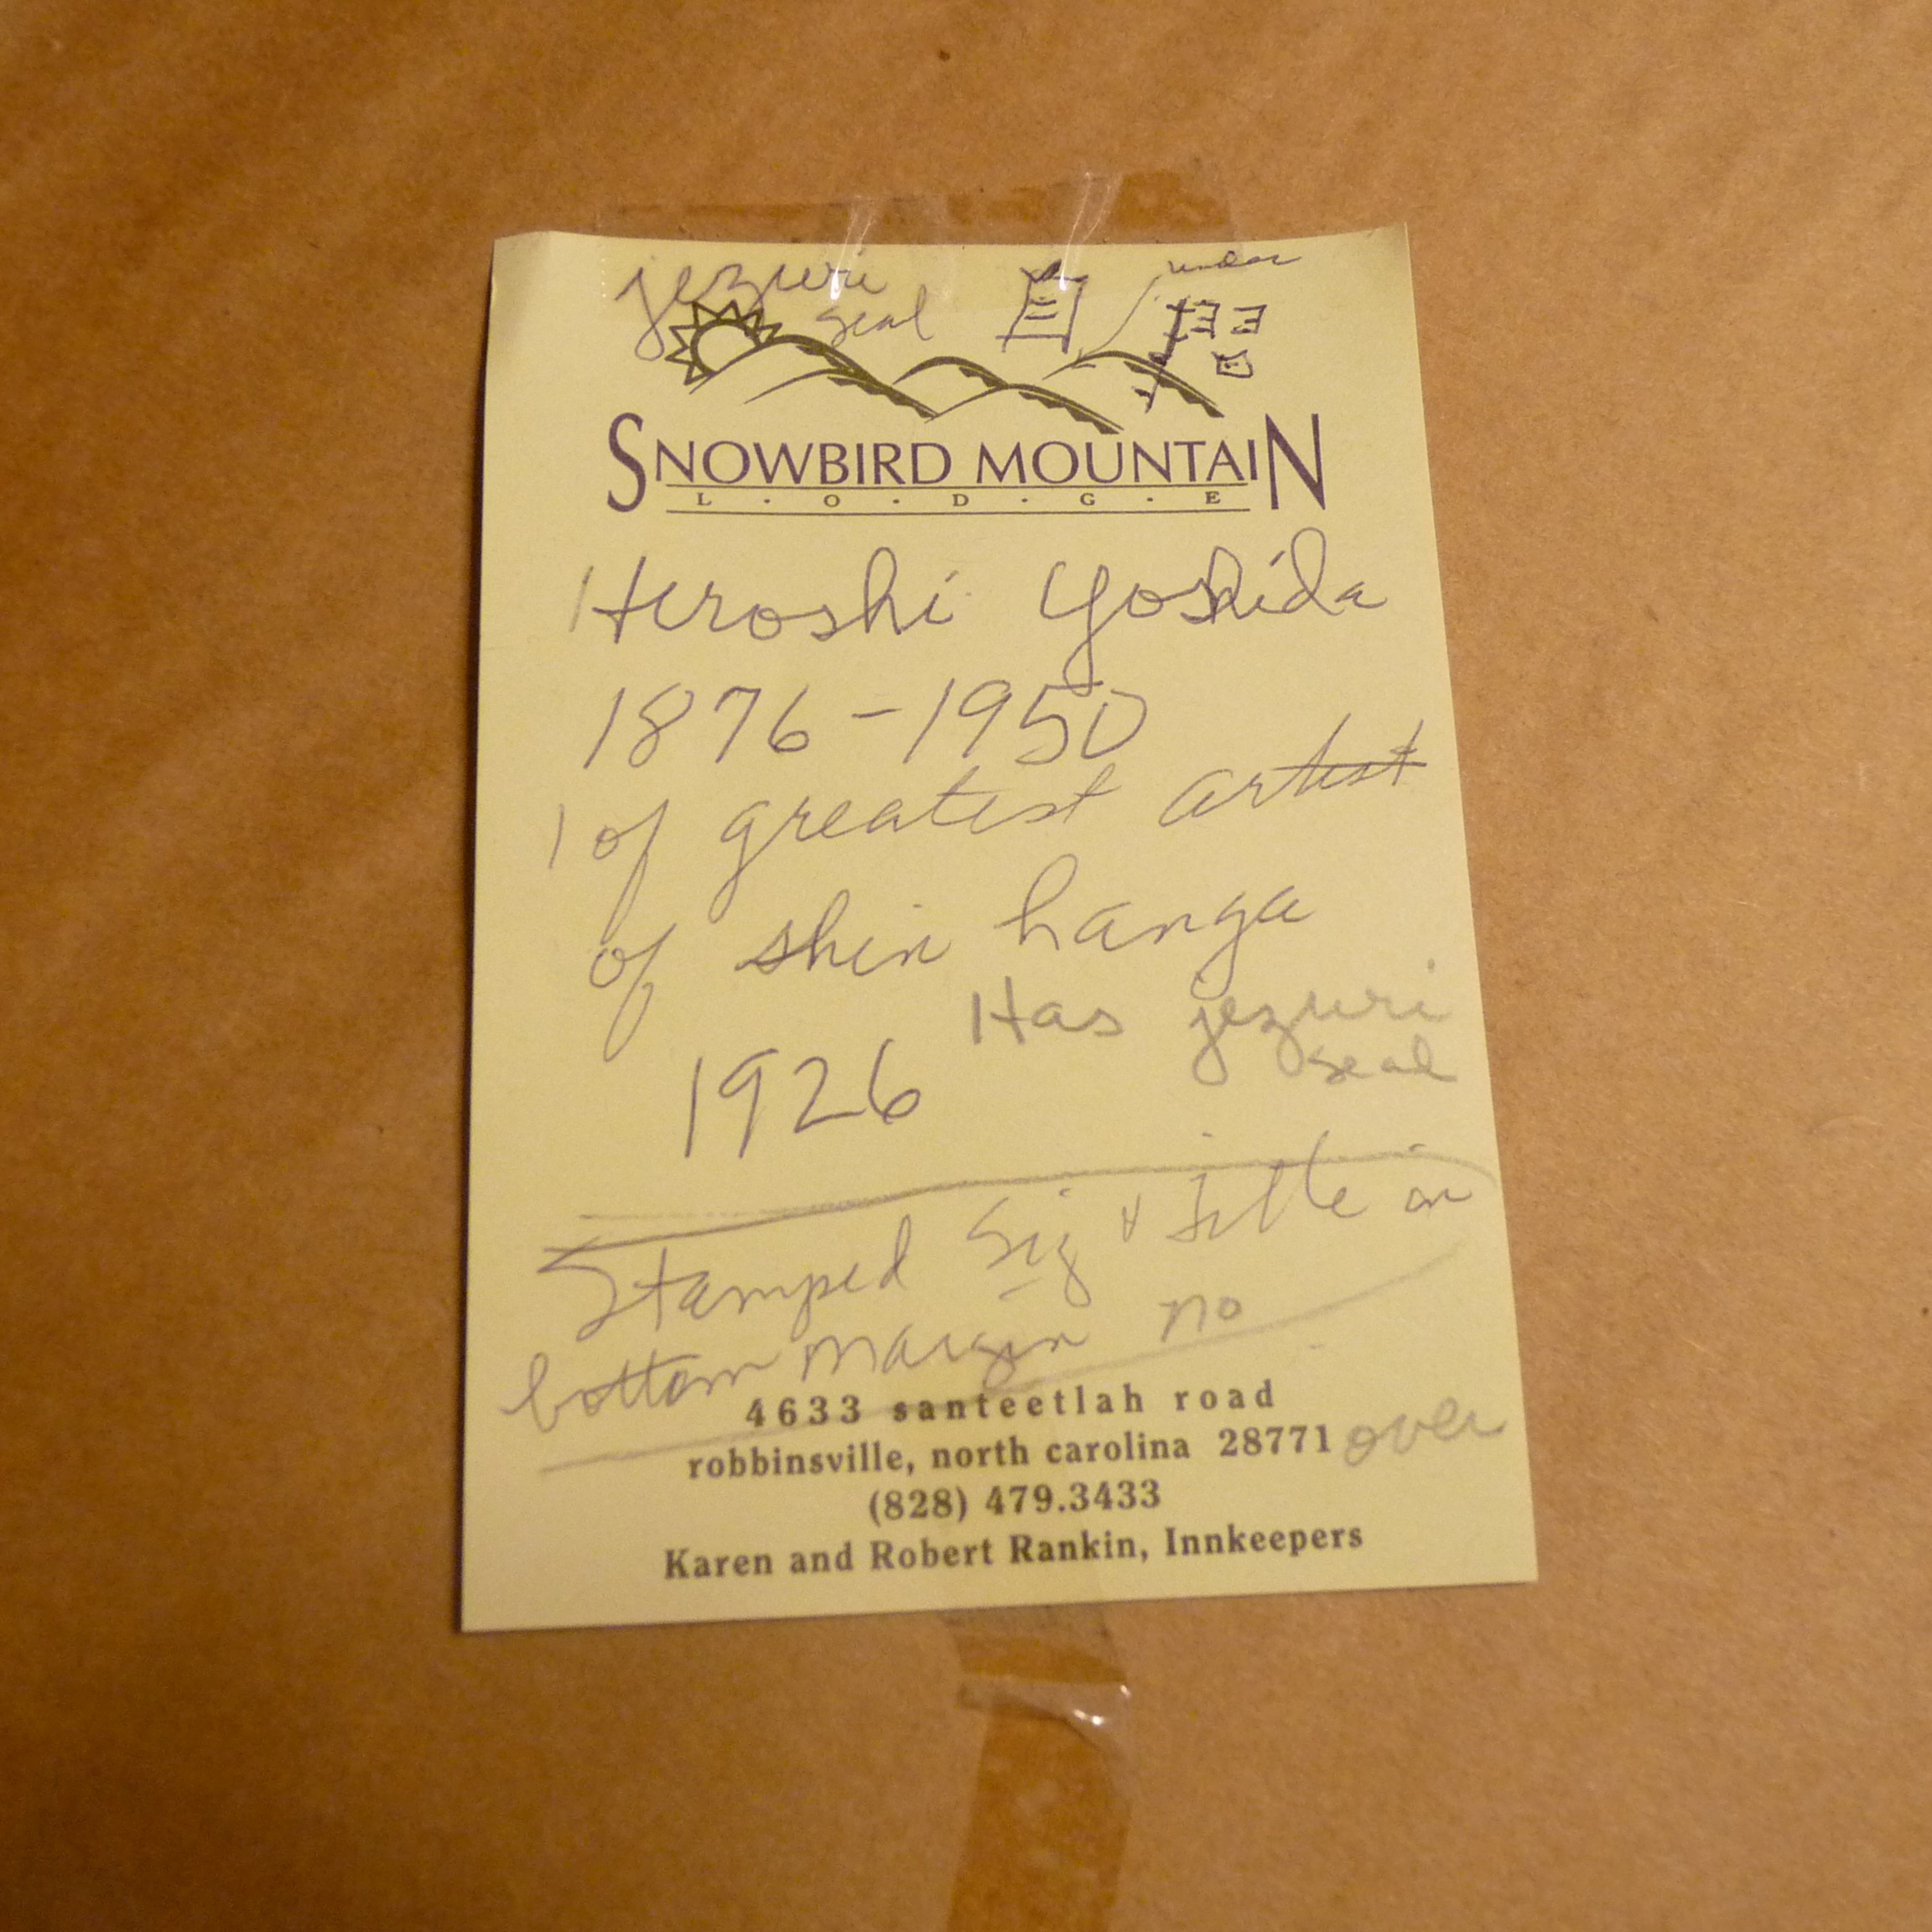 jezuri
seal
under
SNOWBIRD MOUNTAIN
L · O · D · G · E
Hiroshi Yoshida
1876-1950
1 of greatest artist
of shin hanga
Has jezuri
seal
1926
Stamped Sig & title in
bottom margin no
4633 santeetlah road
robbinsville, north carolina 28771 over
(828) 479.3433
Karen and Robert Rankin, Innkeepers